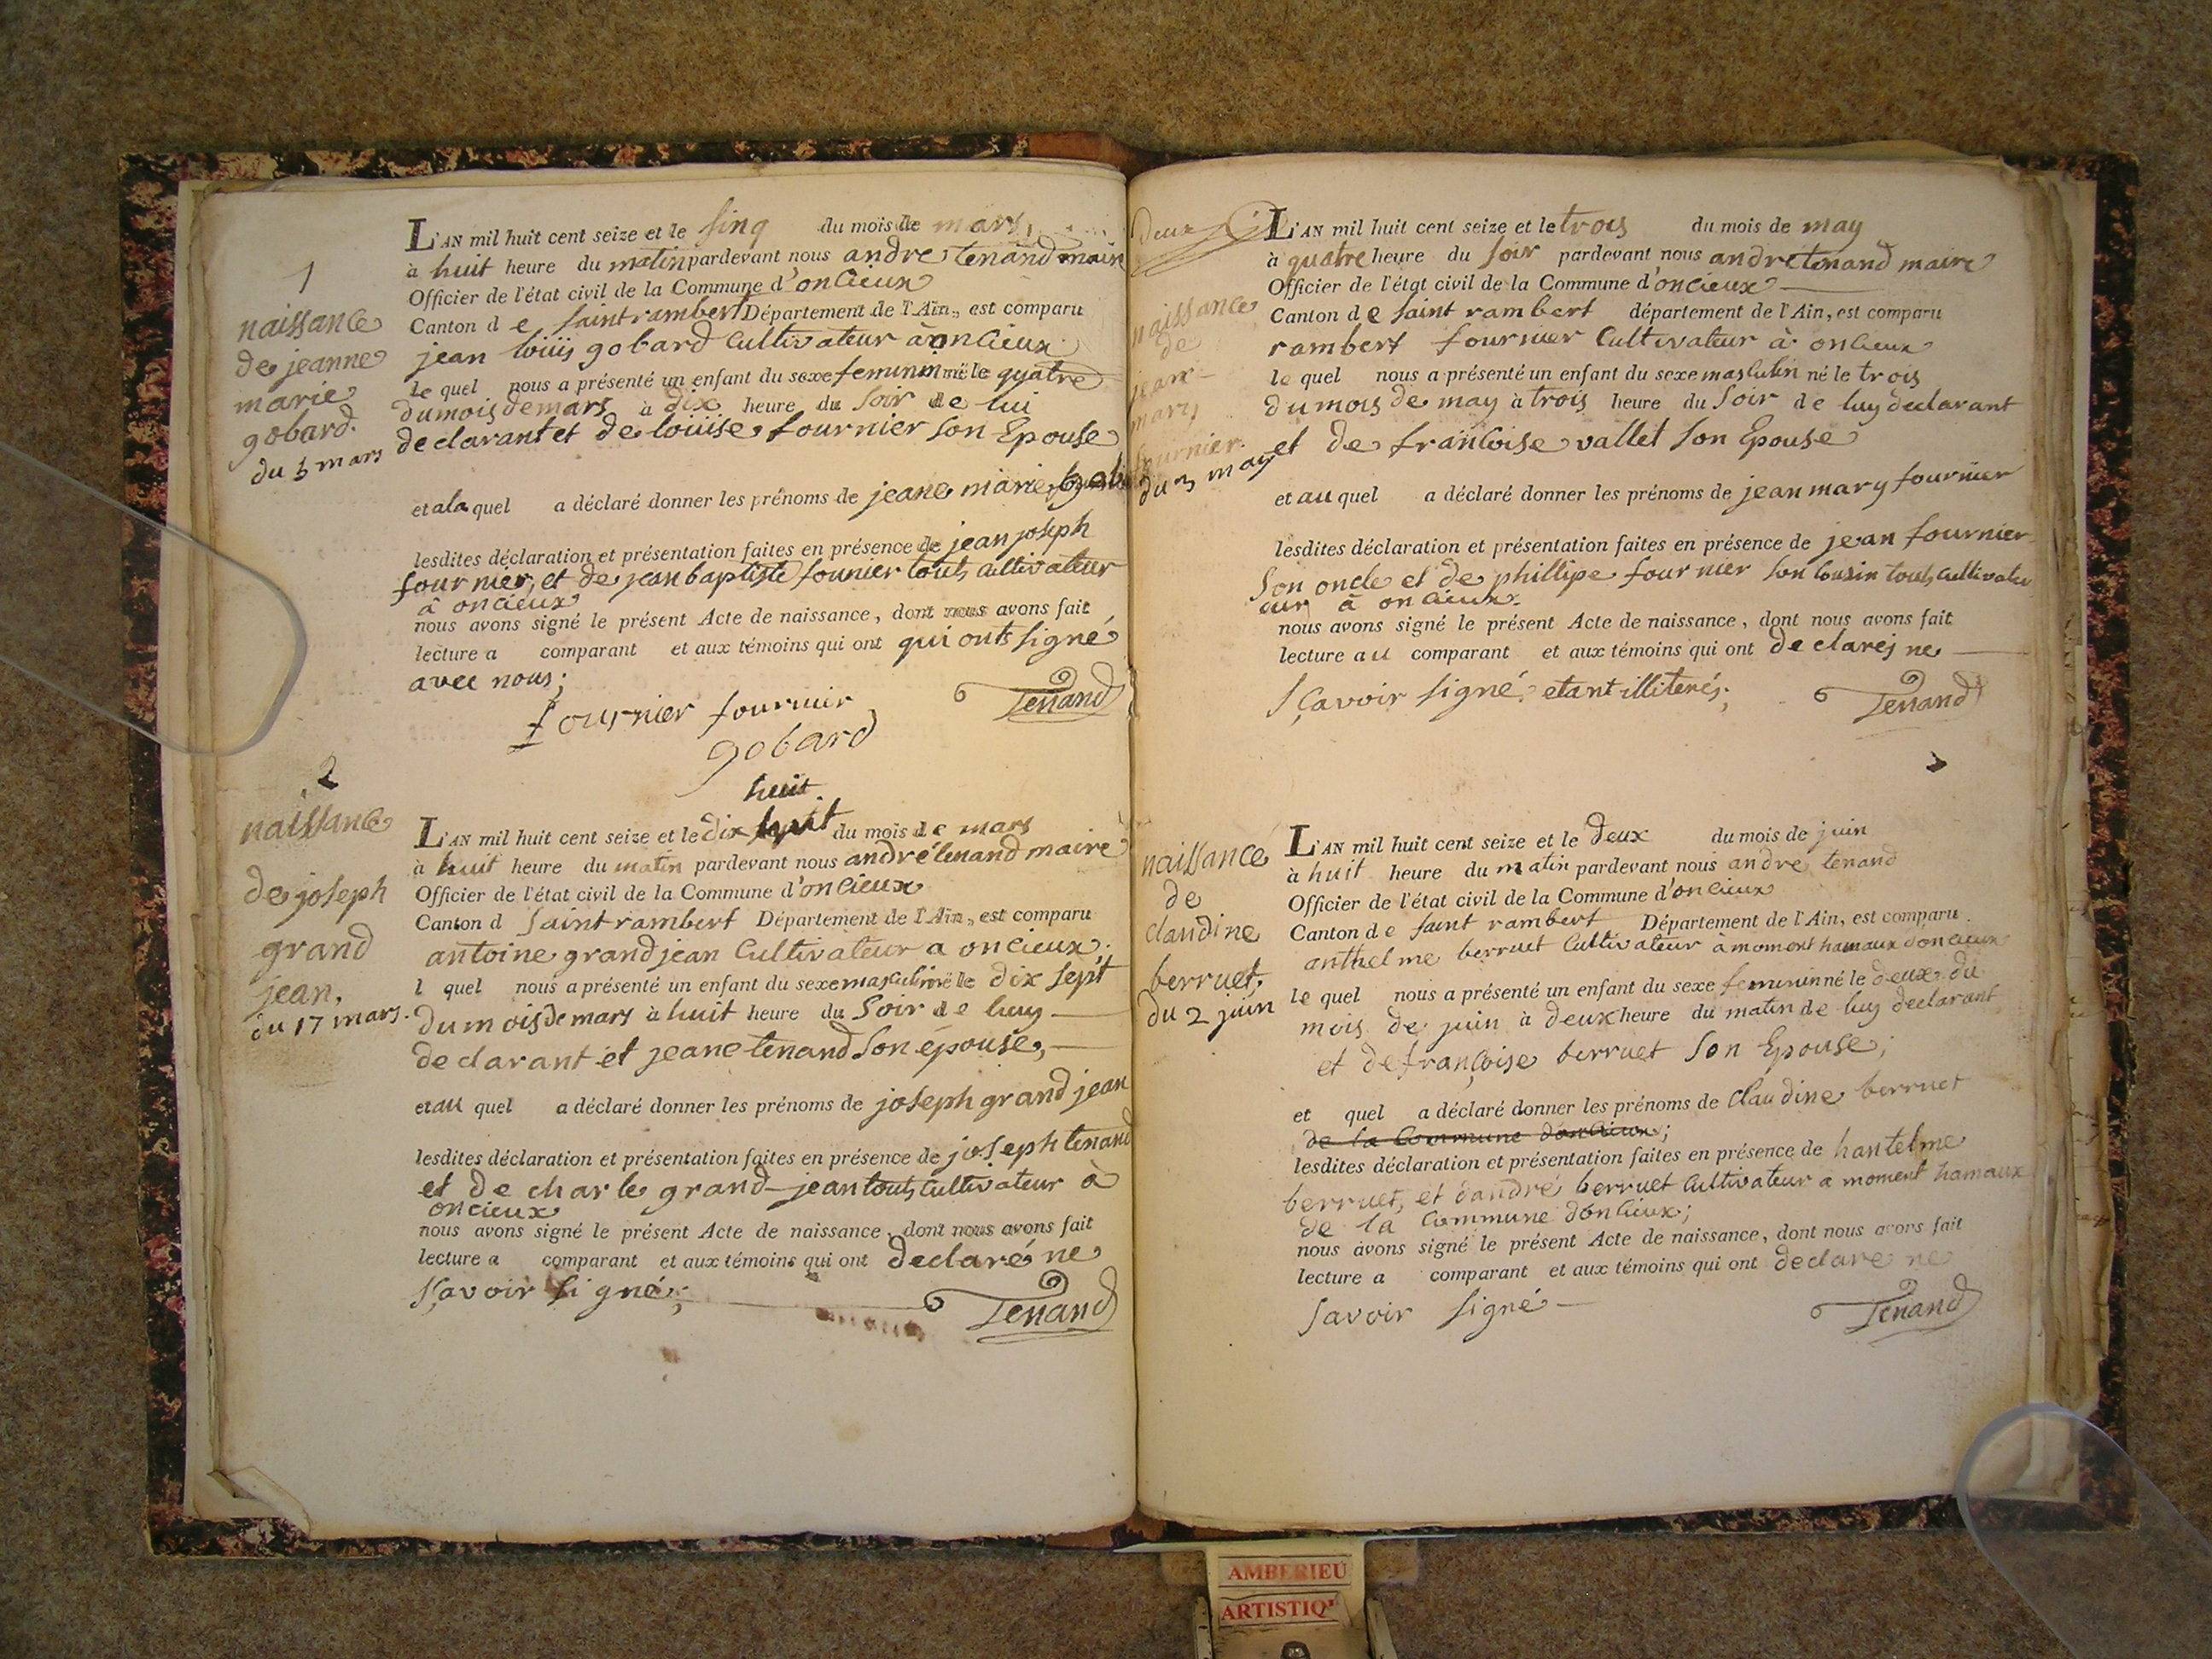 1
naissance
de jeanne
marie
gobard.
du 5 mars
L'AN mil huit cent seize et le sinq du mois de mars,
à huit heure du matin pardevant nous andre tenand maire
Officier de l'état civil de la Commune d'oncieux
Canton d e saint rambert Département de l'Ain, est comparu
jean louis gobard cultivateur à oncieux
le quel nous a présenté un enfant du sexe feminin né le quatre
du mois de mars à dix heure du soir de lui
declarant et de louise fournier son Epouse
et ala quel a déclaré donner les prénoms de jeane marie
lesdites déclaration et présentation faites en présence de jean joseph
fournier, et de jean baptiste founier touts cultivateur
à oncieux
nous avons signé le présent Acte de naissance, dont nous avons fait
lecture a comparant et aux témoins qui ont qui onts signé
avec nous;
fournier fournier Tenand
gobard
2
naissance
de joseph
grand
jean.
du 17 mars.
huit
L'AN mil huit cent seize et le dix huit du mois de mars
à huit heure du matin pardevant nous andré tenand maire
Officier de l'état civil de la Commune d'oncieux
Canton d saint rambert Département de l'Ain, est comparu
antoine grand jean cultivateur a oncieux;
l quel nous a présenté un enfant du sexe masculin né le dix sept
du mois de mars à huit heure du soir de luy
declarant et jeane tenand son épouse,
et au quel a déclaré donner les prénoms de joseph grand jean
lesdites déclaration et présentation faites en présence de joseph tenand
et de charle grand-jean touts cultivateur à
oncieux
nous avons signé le présent Acte de naissance, dont nous avons fait
lecture a comparant et aux témoins qui ont declaré ne
sçavoir signé; Tenand
deux
naissance
de
jean-
mary
fournier.
du 3 may
L'AN mil huit cent seize et le trois du mois de may
à quatre heure du soir pardevant nous andré tenand maire
Officier de l'état civil de la Commune d'oncieux
Canton d e saint rambert département de l'Ain, est comparu
rambert fournier cultivateur à oncieux
le quel nous a présenté un enfant du sexe masculin né le trois
du mois de may à trois heure du soir de luy declarant
et de françoise vallet son Epouse
et au quel a déclaré donner les prénoms de jean mary fournier
lesdites déclaration et présentation faites en présence de jean fournier
son oncle et de phillipe fournier son cousin touts cultivate
eur à oncieux.
nous avons signé le présent Acte de naissance, dont nous avons fait
lecture au comparant et aux témoins qui ont declarés ne
sçavoir signé etant illiterés; Tenand
naissance
de
claudine
berruet,
du 2 juin
L'AN mil huit cent seize et le deux du mois de juin
à huit heure du matin pardevant nous andre tenand
Officier de l'état civil de la Commune d'oncieux
Canton d e saint rambert Département de l'Ain, est comparu
anthelme berruet cultivateur à moment hamaux d'oncieux
le quel nous a présenté un enfant du sexe feminin né le deux du
mois de juin à deux heure du matin de luy declarant
et de françoise berruet son Epouse;
et quel a déclaré donner les prénoms de claudine berruet
de la commune d'oncieux;
lesdites déclaration et présentation faites en présence de hantelme
berruet, et d'andré berruet cultivateur a moment hamaux
de la commune d'oncieux;
nous avons signé le présent Acte de naissance, dont nous avons fait
lecture a comparant et aux témoins qui ont declare ne
savoir signé Tenand
AMBERIEU
ARTISTIQ